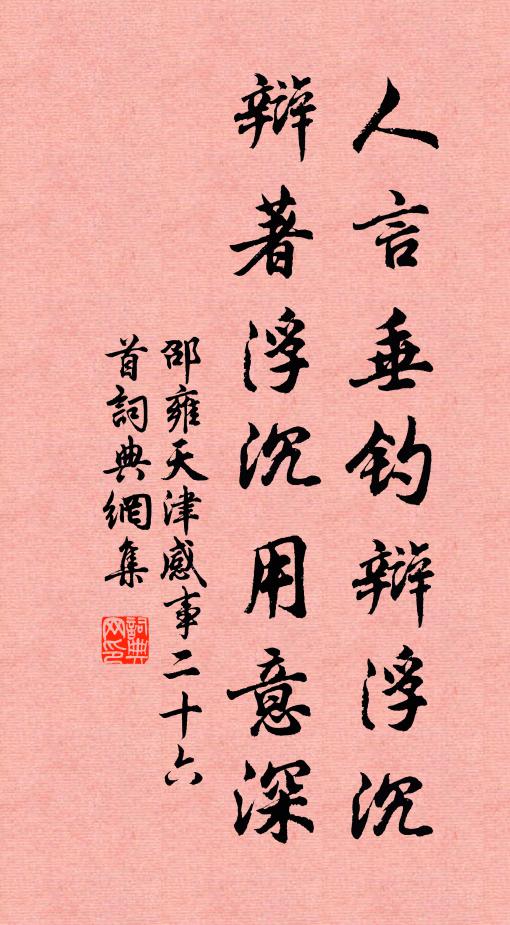 人言垂钓辩浮沉
辩著浮沉用意深
邵雍天津感事二十六
首詞典網集
詞典
网印